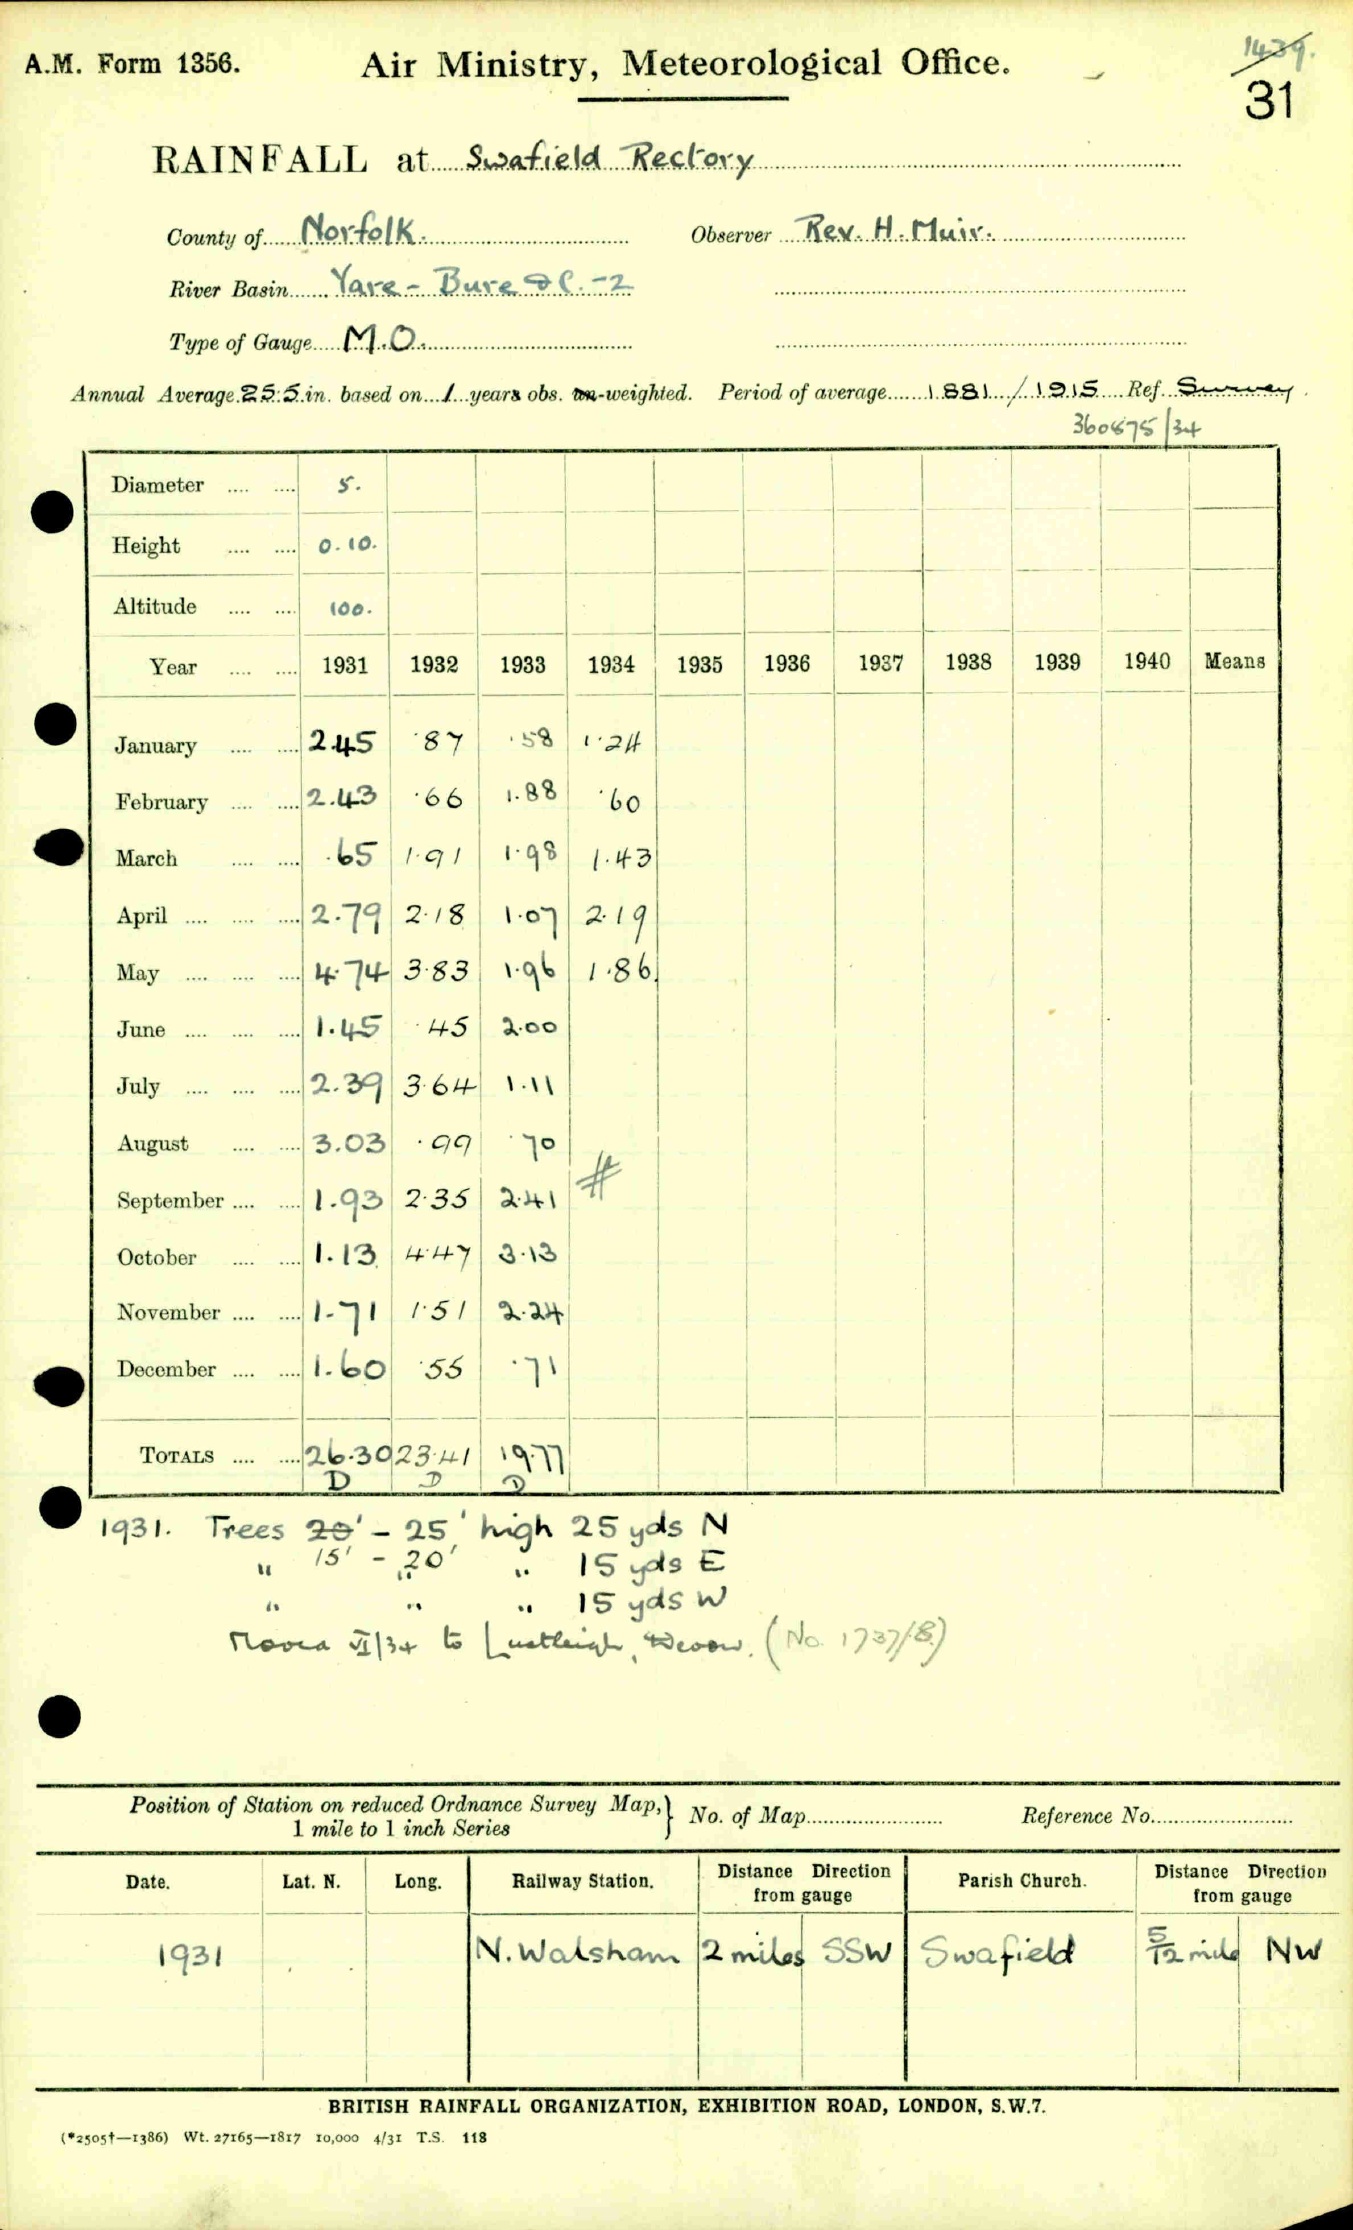 A.M. Form 1356. Air Ministry, Meteorological Office. 1439.
31
RAINFALL at Swafield Rectory
County of Norfolk. Observer Rev. H. Muir.
River Basin Yare - Bure &c. -2
Type of Gauge M.O.
Annual Average 25.5 in. based on 1 years obs. un-weighted. Period of average 1881/1915 Ref. Survey
360875/34
Diameter .... .... 5.
Height .... .... 0.10.
Altitude .... .... 100.
Year .... .... 1931 1932 1933 1934 1935 1936 1937 1938 1939 1940 Means
January .... .... 2.45 .87 .58 1.24
February .... .... 2.43 .66 1.88 .60
March .... .... .65 1.91 1.98 1.43
April .... .... .... 2.79 2.18 1.07 2.19
May .... .... .... 4.74 3.83 1.96 1.86
June .... .... .... 1.45 .45 2.00
July .... .... .... 2.39 3.64 1.11
August .... .... 3.03 .99 .70
#
September .... .... 1.93 2.35 2.41
October .... .... 1.13 4.47 3.13
November .... .... 1.71 1.51 2.24
December .... .... 1.60 .55 .71
TOTALS .... .... 26.30 23.41 19.77
D D D
1931. Trees 20' - 25' high 25 yds N
" 15' - 20' " 15 yds E
" " " 15 yds W
Moved VI/34 to Lustleigh, Devon. (No. 1737/8)
Position of Station on reduced Ordnance Survey Map,} No. of Map Reference No.
1 mile to 1 inch Series
Date. Lat. N. Long. Railway Station. Distance Direction from gauge Parish Church. Distance Direction from gauge
1931 N. Walsham 2 miles SSW Swafield 5/12 mile NW
BRITISH RAINFALL ORGANIZATION, EXHIBITION ROAD, LONDON, S.W.7.
(*2505†—1386) Wt. 27165—1817 10,000 4/31 T.S. 118